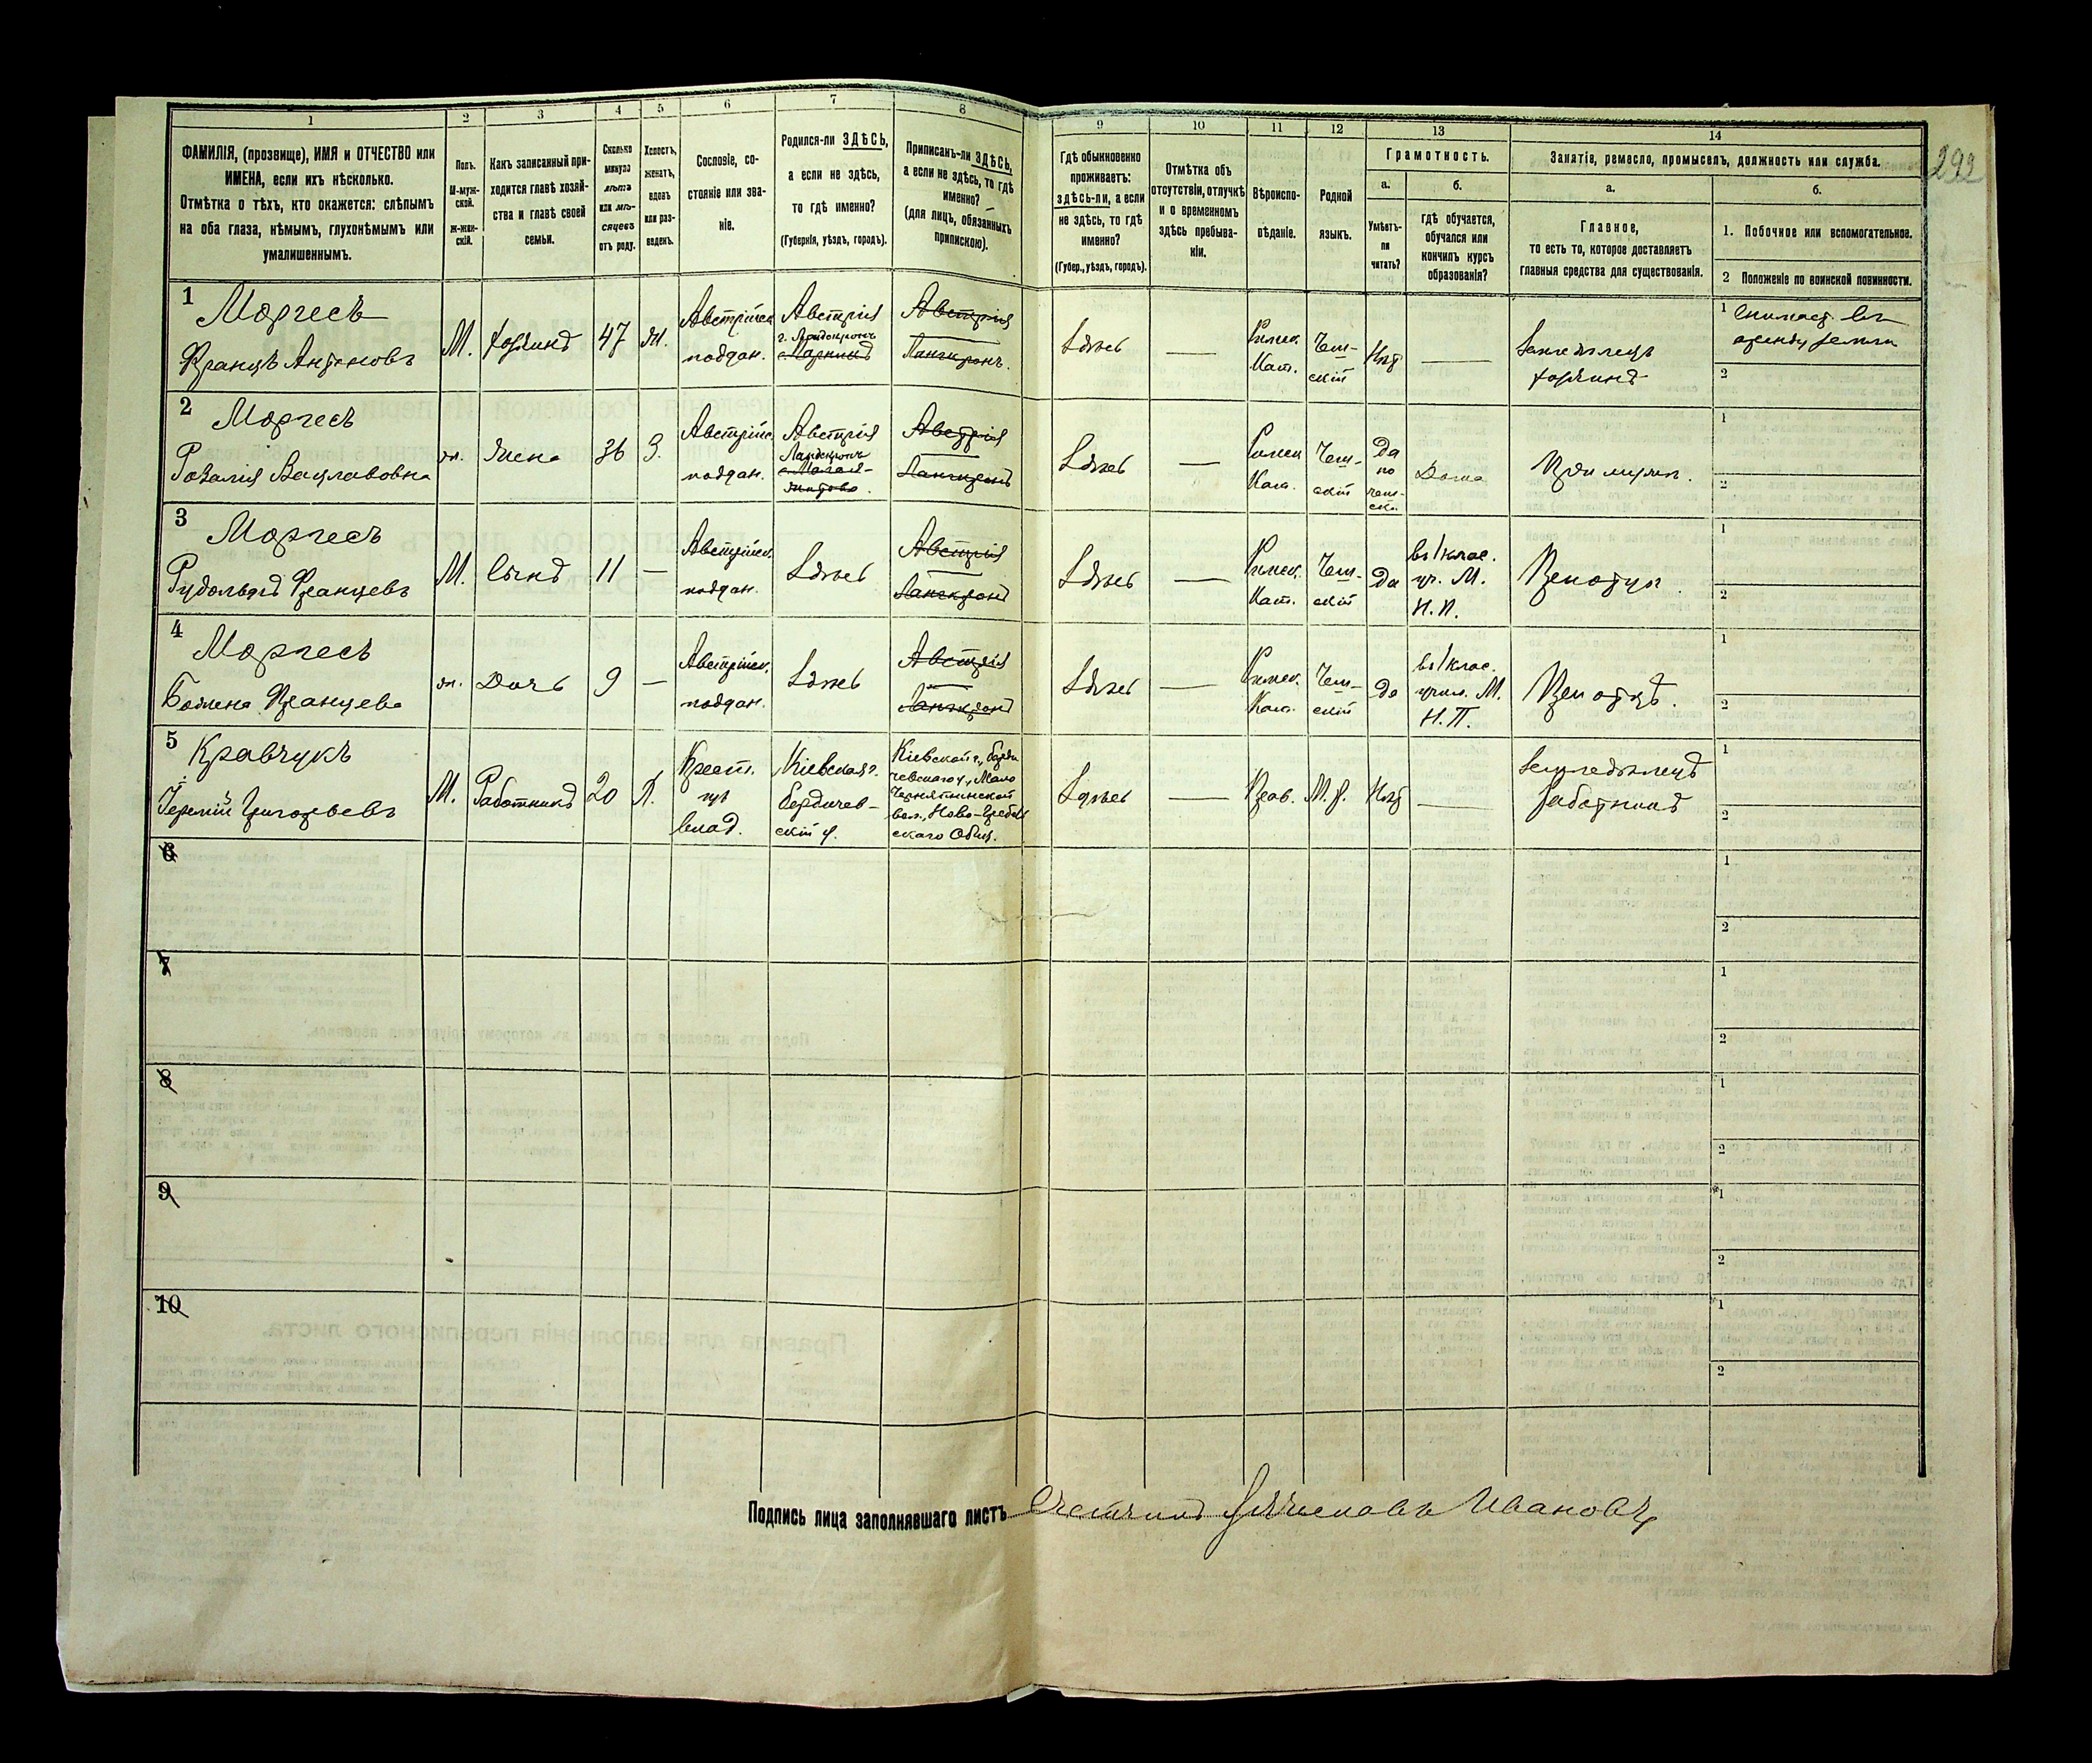 292
1
2
3
4
5
6
7
8
9
10
11
12
13
14
ФАМИЛІЯ, (прозвище), ИМЯ и ОТЧЕСТВО или
ИМЕНА, если ихъ нѣсколько.
Отмѣтка о тѣхъ, кто окажется: слѣпымъ
на оба глаза, нѣмымъ, глухонѣмымъ или
умалишеннымъ.
Полъ.
М-муж-
ской.
ж-жен-
скій.
Какъ записанный при-
ходится главѣ хозяй-
ства и главѣ своей
семьи.
Сколько
минуло
лѣтъ
или мѣ-
сяцевъ
отъ роду.
Холостъ,
женатъ,
вдовъ
или раз-
веденъ.
Сословіе, со-
стояніе или зва-
ніе.
Родился-ли ЗДѢСЬ,
а если не здѣсь,
то гдѣ именно?
(Губернія, уѣздъ, городъ).
Приписанъ-ли ЗДѢСЬ,
а если не здѣсь, то гдѣ
именно?
(для лицъ, обязанныхъ
припискою).
Гдѣ обыкновенно
проживаетъ:
здѣсь-ли, а если
не здѣсь, то гдѣ
именно?
(Губер., уѣздъ, городъ).
Отмѣтка объ
отсутствіи, отлучкѣ
и о временномъ
здѣсь пребыва-
ніи.
Вѣроиспо-
вѣданіе.
Родной
языкъ.
Грамотность.
а.
Умѣетъ-
ли
читать?
б.
гдѣ обучается,
обучался или
кончилъ курсъ
образованія?
Занятіе, ремесло, промыселъ, должность или служба.
а.
Главное,
то есть то, которое доставляетъ
главныя средства для существованія.
б.
1. Побочное или вспомогательное.
2 Положеніе по воинской повинности.
1
Моргесъ
Францъ Антоновъ
М.
хозяинъ
47
Ж.
Австрійск
поддан.
Австрія
г. Ландскронъ
Австрія
Ланскронъ.
Здѣсь
—
Римск.
Кат.
Чеш-
скій
Нѣт
—
Земледѣлецъ
хозяинъ
1 Снимает въ
аренду земли
2
2
Моргесъ
Розалія Вацлавовна
ж.
жена
36
З.
Австрійс.
поддан.
Австрія
Ландскронъ
Австрія
Ланскронъ
Здѣсь
—
Римск
Кат.
Чеш-
скій
Да
по
чеш-
ски.
Дома
При мужѣ.
1
2
3
Моргесъ
Рудольфъ Францевъ
М.
Сынъ
11
—
Австрійск.
поддан.
Здѣсь
Австрія
Ланскронъ
Здѣсь
—
Римск.
Кат.
Чеш-
скій
Да
въ I клас.
уч. М.
Н. П.
При отцѣ.
1
2
4
Моргесъ
Божена Францева
ж.
Дочь
9
—
Австрійск.
поддан.
Здѣсь
Австрія
Ланскронъ
Здѣсь
—
Римск.
Кат.
Чеш-
скій
да
въ I клас.
учил. М.
Н. П.
При отцѣ.
1
2
5
Кравчукъ
Іеремій Григорьевъ
М.
Работникъ
20
Х.
Крест.
изъ
влад.
Кіевская г.
Бердичев-
скій у.
Кіевской г., Берди
чевскаго у., Мало
Чернятинской
вол., Ново-Гребль
скаго Общ.
Здѣсь
—
Прав.
М. р.
Нѣт
—
Земледѣлецъ
работникъ
1
2
6
1
2
7
1
2
8
1
2
9
1
2
10
1
2
Подпись лица заполнявшаго листъ
Ивановъ